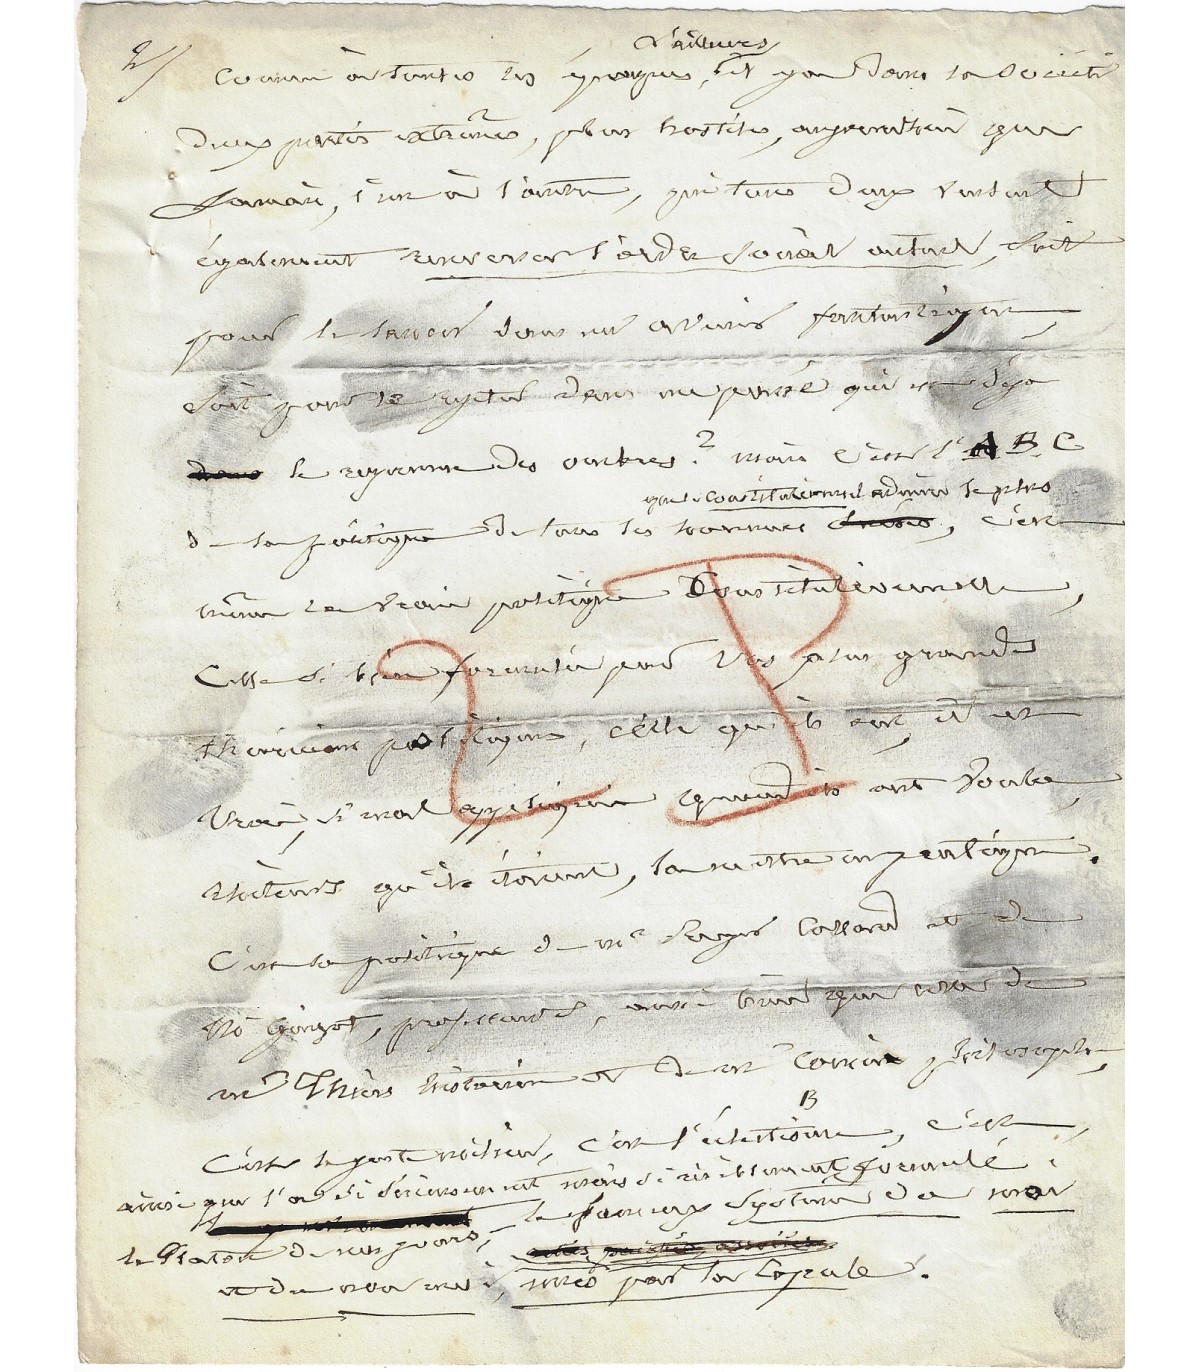 2/
d'ailleurs
Comme à toutes les époques, il y a dans la Société
deux partis extrêmes, plus hostiles, aujourd'hui que
jamais, l'un à l'autre, qui tous deux veulent
également renverser l'ordre social actuel, soit
pour le lancer dans un avenir fantastique,
soit pour le rejeter dans un passé qui est déjà
dans le royaume des ombres? mais c'est l'A B C
que constitutionnel admire le plus
de la politique de tous les hommes, c'est
même la vraie politique Constitutionnelle,
Celle si bien formulée par vos plus grands
théoriciens politiques, celle qu'ils ont, il est
vrai, si mal appliquée quand ils ont voulu,
rhéteurs qu'ils étaient, la mettre en pratique.
C'est la politique de mr Royer Collard et de
Mr Guizot, professeurs, aussi bien que celle de
mr Thiers historien et de mr Cousin philosophe,
B
C'est le juste milieu, c'est l'éclectisme, c'est,
ainsi que l'a si sérieusement mais si risiblement formulé
le Platon de nos jours, le fameux système du moi
et du non moi, unis par la Copule.